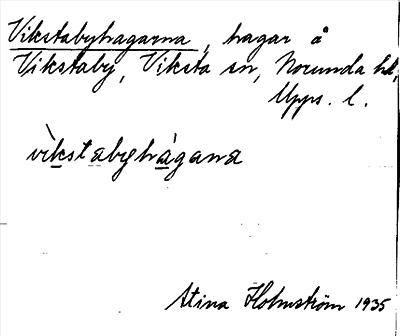 Vikstabyhagarna, hagar å
Vikstaby, Viksta sn, Norunda hd,
Upps. l.
vìkstabyhàgana
Stina Holmström 1935